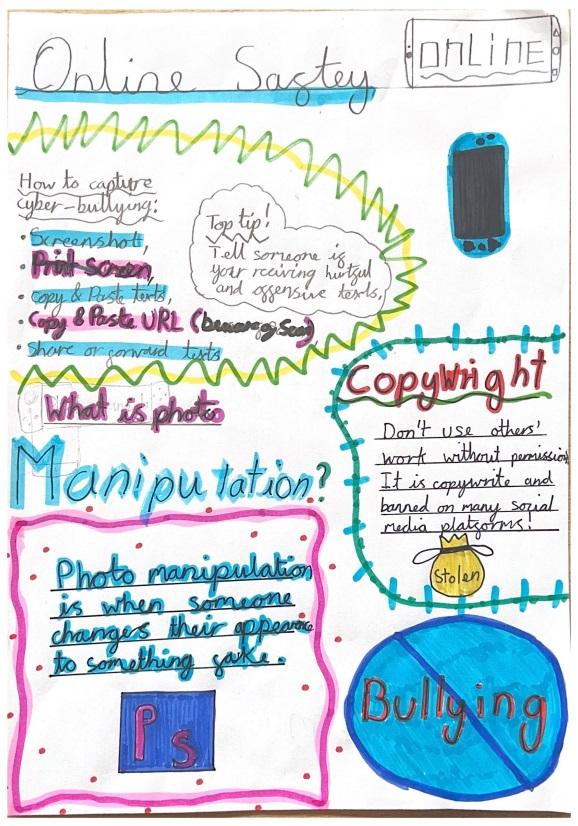 Online Saftey
OnLiNE
How to capture
cyber-bullying:
• Screenshot,
• Print screen,
• copy & Paste texts,
• Copy & Paste URL (beware of Scam)
• Share or forward texts
Top tip!
Tell someone if
your reciving hurtful
and offensive texts,
CopyWright
Don't use others'
work without permission
It is copywrite and
banned on many social
media platforms!
Stolen
What is photo
Manipulation?
Photo manipulation
is when someone
changes their appearance
to something fake.
Ps
Bullying